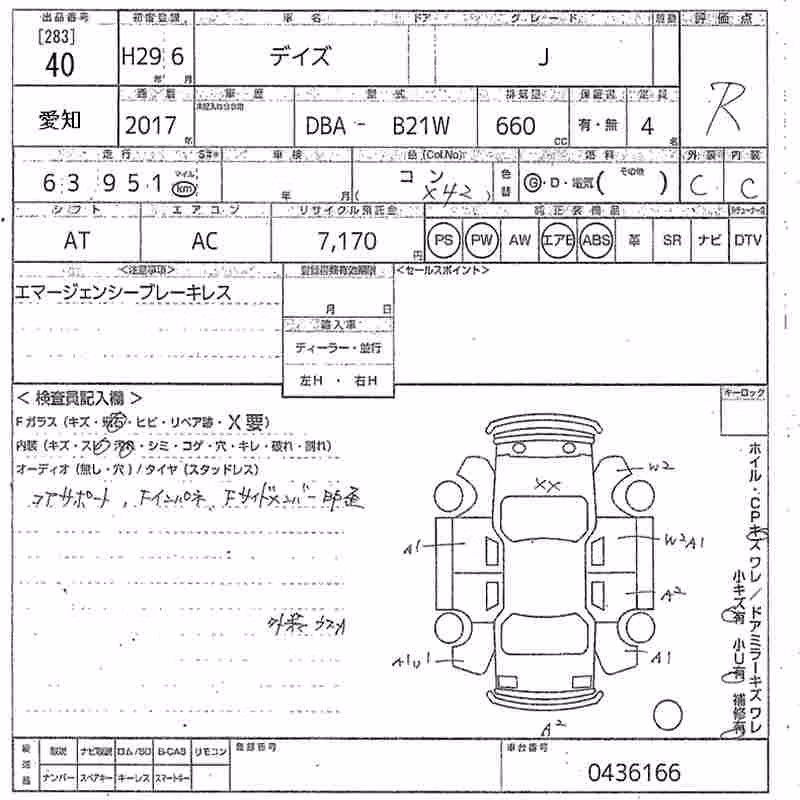 出品番号 初度登録 車名 ドア グレード 評価点
[283]
40
H29 6
年 月
デイズ
J
R
愛知
車歴 型式 排気量 保証書 定員
2017 年
DBA - B21W
660 CC
有・無
4 名
走行 車検 色(Col.No) 燃料 外装 内装
63951 マイル km
年 月
コン
X42
色替
G・D・電気( その他 )
C
C
シフト エアコン リサイクル預託金 純正装備品
AT
AC
7,170 円
PS PW AW エアB ABS 革 SR ナビ DTV
<注意事項>
エマージェンシーブレーキレス
月 日
輸入車
ディーラー・並行
左H ・ 右H
<セールスポイント>
<検査員記入欄>
Fガラス (キズ・飛石・ヒビ・リペア跡・X要)
内装 (キズ・スレ・汚れ・シミ・コゲ・穴・キレ・破れ・割れ)
オーディオ (無し・穴) / タイヤ (スタッドレス)
コアサポート, Fインパネ, Fサイドメンバー 即歪
キーロック
ホイル・CPキズワレ/ドアミラーキズワレ
小キズ有 小U有 補修有
XX
W2
A1
W2A1
A2
A1U1
A1
A2
後送品
取説 ナビ取説 ロム/SD B-CAS リモコン
ナンバー スペアキー キーレス スマートキー
登録番号
車台番号
0436166